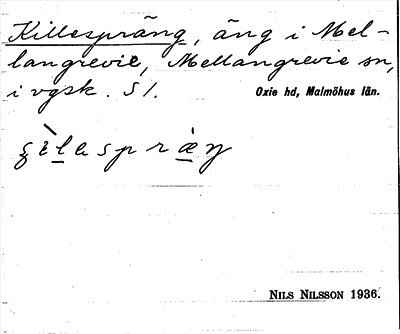 Killespräng, äng i Mel-
langrevie, Mellangrevie sn,
i vgsk. S 1.
Oxie hd, Malmöhus län.
NILS NILSSON 1936.